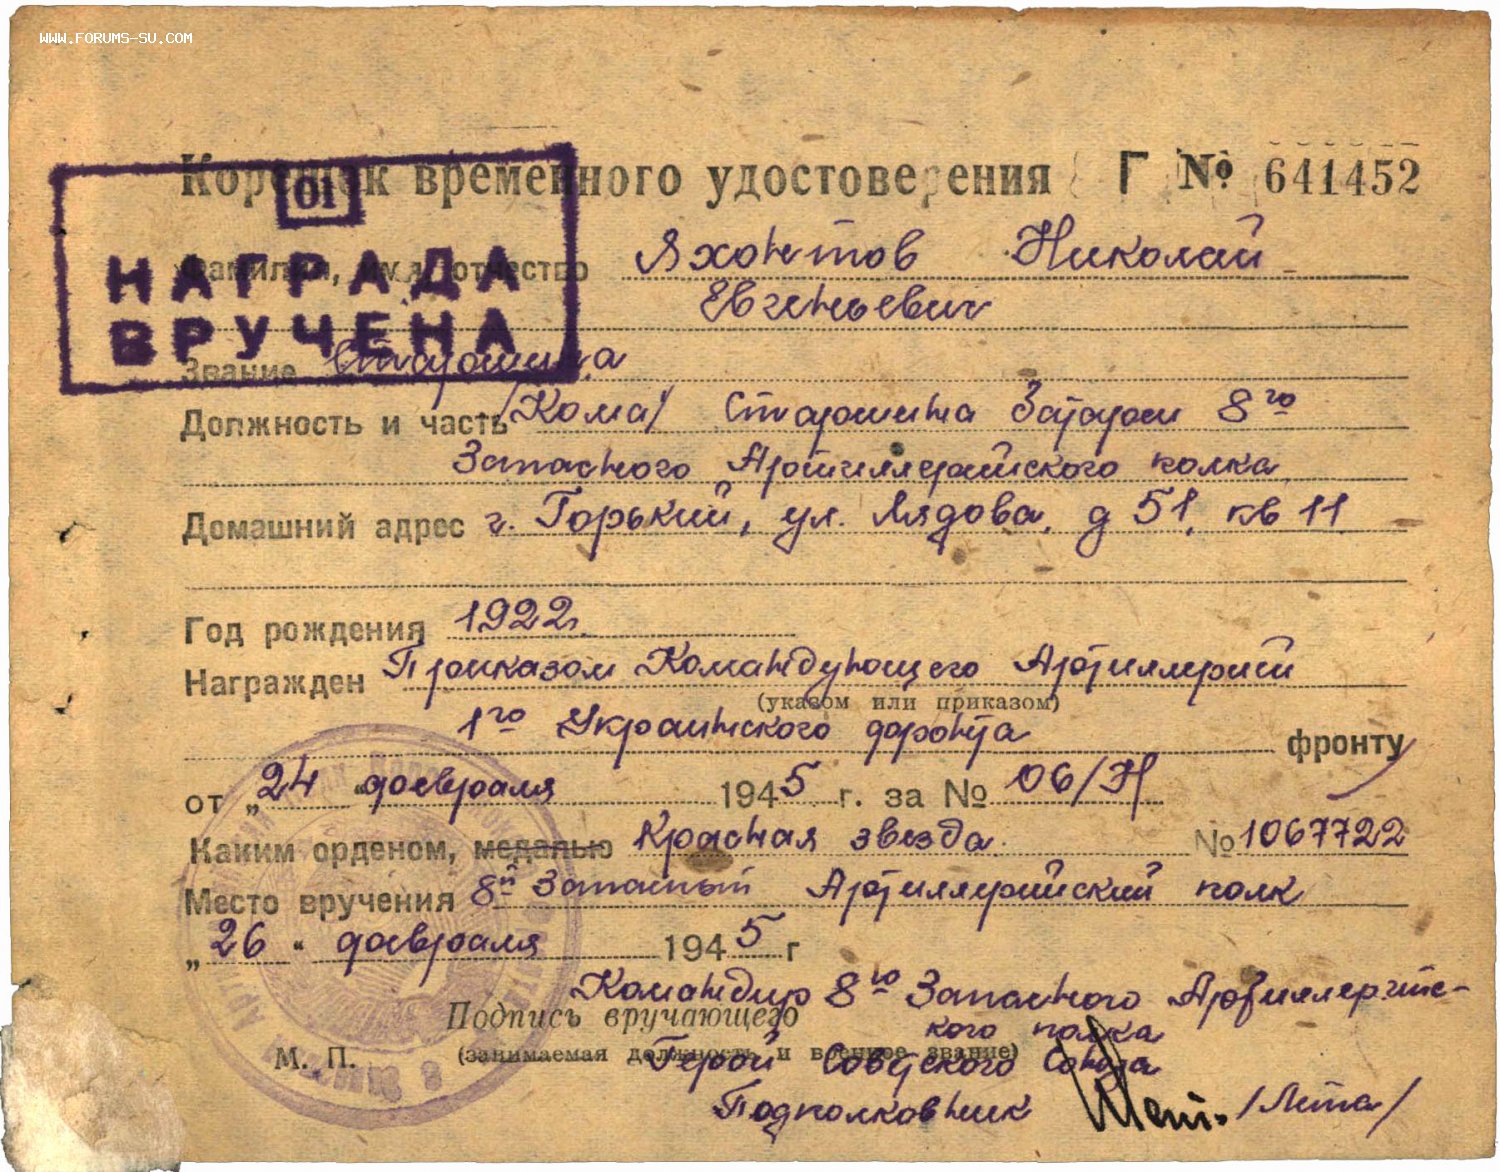 WWW.FORUMS-SU.COM
Корешок временного удостоверения Г № 641452
01
НАГРАДА
ВРУЧЕНА
Фамилия, имя, отчество Яхонтов Николай
Евгеньевич
Звание Старшина
Должность и часть /Кома/ Старшина Батареи 8го
Запасного Артиллерийского полка
Домашний адрес г. Горький, ул. Лядова, д 51, кв 11
Год рождения 1922г.
Награжден Приказом Командующего Артиллерией
(указом или приказом)
1го Украинского фронта фронту
от „24“ февраля 1945 г. за № 06/Н
Каким орденом, медалью Красная звезда. № 1067722
Место вручения 8й Запасный Артиллерийский полк
„26“ февраля 1945 г
Командир 8го Запасного Артиллерийс-
кого полка
Подпись вручающего
(занимаемая должность и военное звание)
Герой Советского Союза
М. П.
Подполковник /Лета/